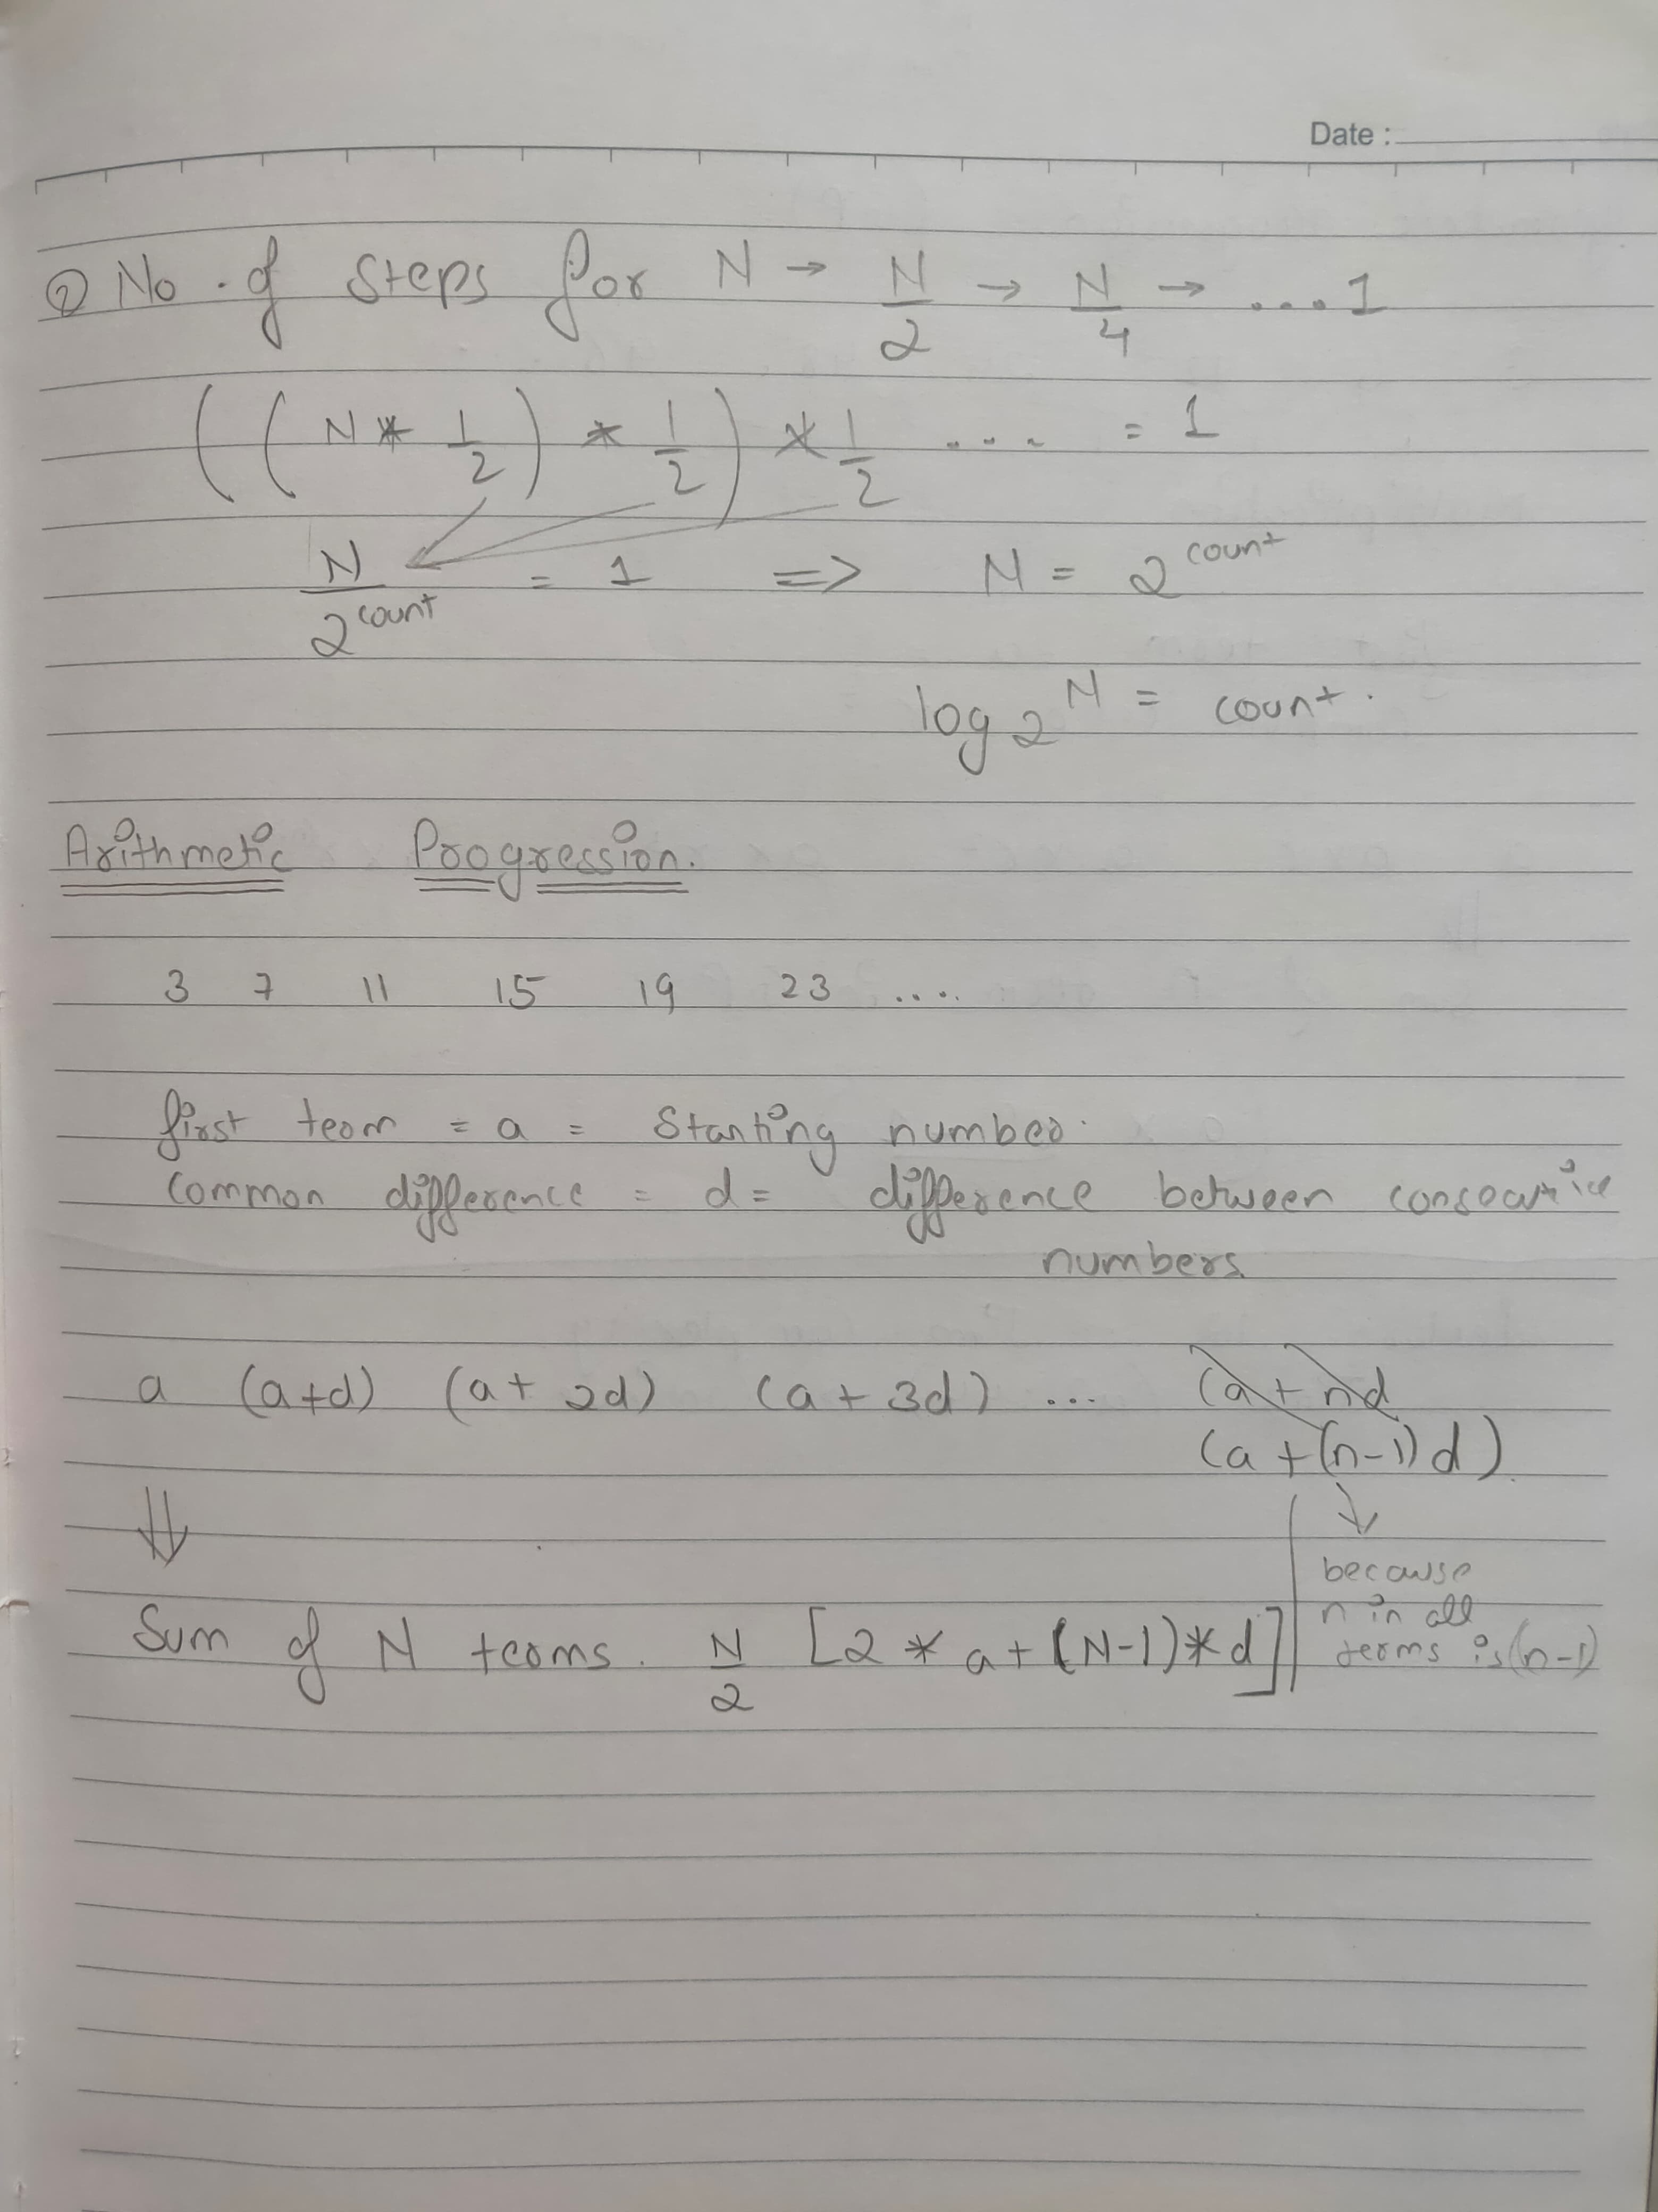 Date :
② No. of steps for N → N/2 → N/4 → ....1
((N * 1/2) * 1/2) * 1/2 .... = 1
N/2^count = 1 => N = 2^count
log2 N = count.
Arithmetic Progression.
3 7 11 15 19 23 ....
first term = a = Starting number.
Common difference = d = difference between consecutive
numbers.
a (a+d) (a + 2d) (a + 3d) ... (a + nd
(a + (n-1) d)
⇓ ↓
because
n in all
terms is (n-1)
Sum of N terms. N/2 [2 * a + (N-1) * d]